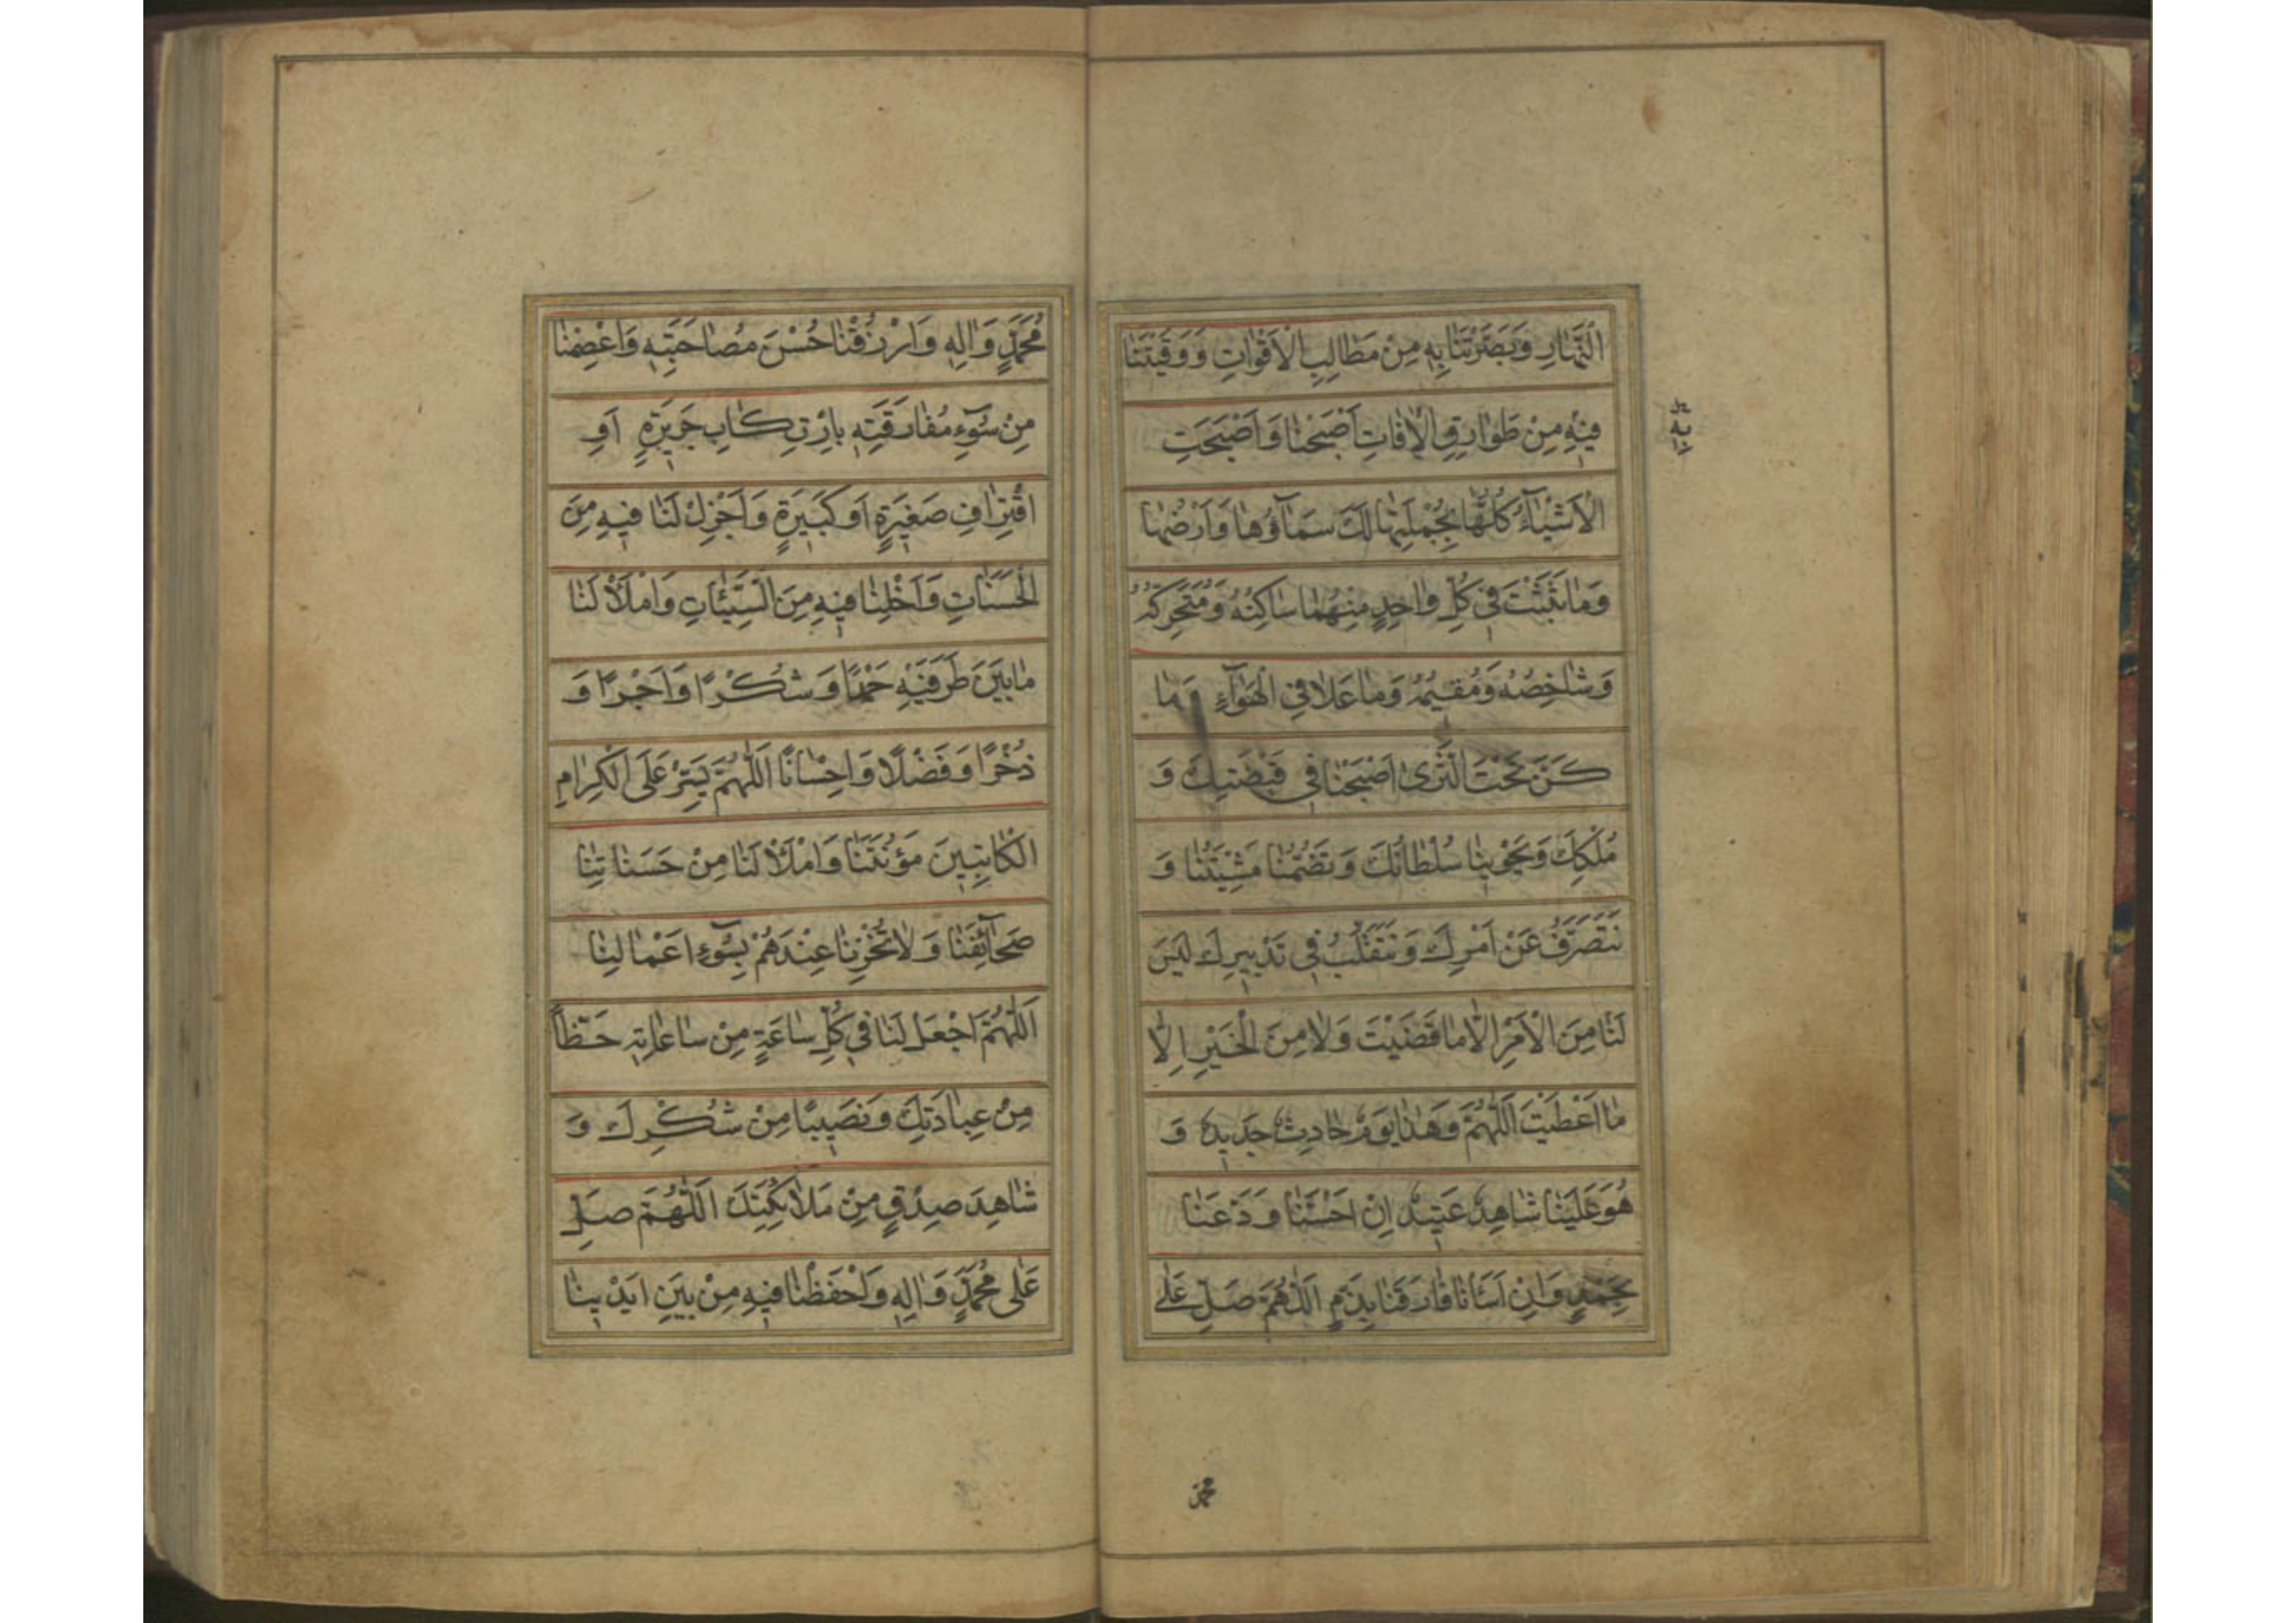 النَّهَارِ وَبَصَّرْتَنَا بِهِ مِنْ مَطَالِبِ الْأَقْوَاتِ وَوَقَيْتَنَا
فِيهِ مِنْ طَوَارِقِ الْآفَاتِ أَصْبَحْنَا وَأَصْبَحَتِ
الْأَشْيَاءُ كُلُّهَا بِجُمْلَتِهَا لَكَ سَمَاؤُهَا وَأَرْضُهَا
وَمَا بَثَثْتَ فِي كُلِّ وَاحِدٍ مِنْهُمَا سَاكِنُهُ وَمُتَحَرِّكُهُ
وَشَاخِصُهُ وَمُقِيمُهُ وَمَا عَلَا فِي الْهَوَاءِ وَمَا
كَنَّ تَحْتَ الثَّرَى أَصْبَحْنَا فِي قَبْضَتِكَ وَ
مُلْكِكَ وَيَحْوِينَا سُلْطَانُكَ وَتَضُمُّنَا مَشِيَّتُنَا وَ
نَتَصَرَّفُ عَنْ أَمْرِكَ وَنَتَقَلَّبُ فِي تَدْبِيرِكَ لَيْسَ
لَنَا مِنَ الْأَمْرِ إِلَّا مَا قَضَيْتَ وَلَا مِنَ الْخَيْرِ إِلَّا
مَا أَعْطَيْتَ اَللّٰهُمَّ وَهَذَا يَوْمٌ حَادِثٌ جَدِيدٌ وَ
هُوَ عَلَيْنَا شَاهِدٌ عَتِيدٌ إِنْ أَحْسَنَّا وَدَّعَنَا
بِحَمْدٍ وَإِنْ أَسَأْنَا فَارَقَنَا بِذَمٍّ اَللّٰهُمَّ صَلِّ عَلَى
محمد
مُحَمَّدٍ وَآلِهِ وَارْزُقْنَا حُسْنَ مُصَاحَبَتِهِ وَاعْصِمْنَا
مِنْ سُوءِ مُفَارَقَتِهِ بِارْتِكَابِ جَرِيرَةٍ أَوِ
اقْتِرَافِ صَغِيرَةٍ أَوْ كَبِيرَةٍ وَأَجْزِلْ لَنَا فِيهِ مِنَ
الْحَسَنَاتِ وَأَخْلِنَا فِيهِ مِنَ السَّيِّئَاتِ وَامْلَأْ لَنَا
مَا بَيْنَ طَرَفَيْهِ حَمْدًا وَشُكْرًا وَأَجْرًا وَ
ذُخْرًا وَفَضْلًا وَإِحْسَانًا اَللّٰهُمَّ يَسِّرْ عَلَى الْكِرَامِ
الْكَاتِبِينَ مَؤُنَتَنَا وَامْلَأْ لَنَا مِنْ حَسَنَاتِنَا
صَحَائِفَنَا وَلَا تُخْزِنَا عِنْدَهُمْ بِسُوءِ أَعْمَالِنَا
اَللّٰهُمَّ اجْعَلْ لَنَا فِي كُلِّ سَاعَةٍ مِنْ سَاعَاتِهِ حَظًّا
مِنْ عِبَادَتِكَ وَنَصِيبًا مِنْ شُكْرِكَ وَ
شَاهِدَ صِدْقٍ مِنْ مَلَائِكَتِكَ اَللّٰهُمَّ صَلِّ
عَلَى مُحَمَّدٍ وَآلِهِ وَاحْفَظْنَا فِيهِ مِنْ بَيْنِ أَيْدِينَا